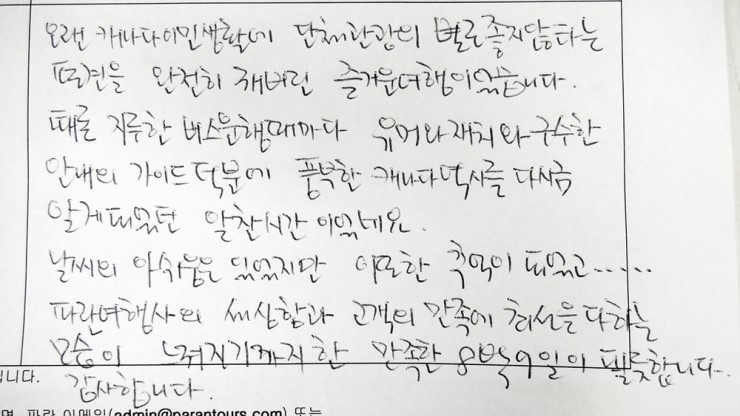 오랜 캐나다이민생활에 단체관광의 별로좋지않다는
편견을 완전히 깨버린 즐거운여행이었습니다.
때론 지루한 버스운행때마다 유머와재치와구수한
안내의 가이드덕분에 풍부한 캐나다역사를 다시금
알게되었던 알찬시간 이었네요.
날씨의 아쉬움은 있었지만 이또한 추억이 되었고......
파란여행사의 세심함과 고객의 만족에 최선을다하는
모습이 느껴지기까지한 만족한 8박9일이 될듯합니다.
감사합니다.
니다.
면 파란 이메일(admin@parantours.com) 또는